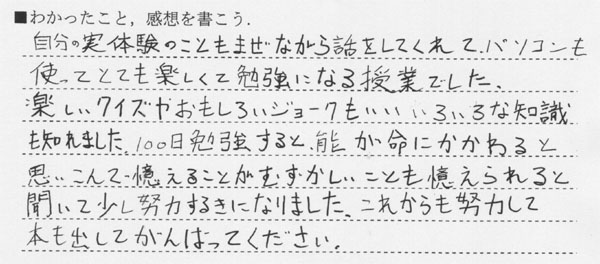 ■わかったこと，感想を書こう．
自分の実体験のこともまぜながら話をしてくれて、パソコンも
使ってとても楽しくて勉強になる授業でした、
楽しいクイズやおもしろいジョークもいい、いろいろな知識
も知れました、100日勉強すると、能が命にかかわると
思いこんで憶えることがむずかしいことも憶えられると
聞いて少し努力するきになりました、これからも努力して
本も出してがんばってください。